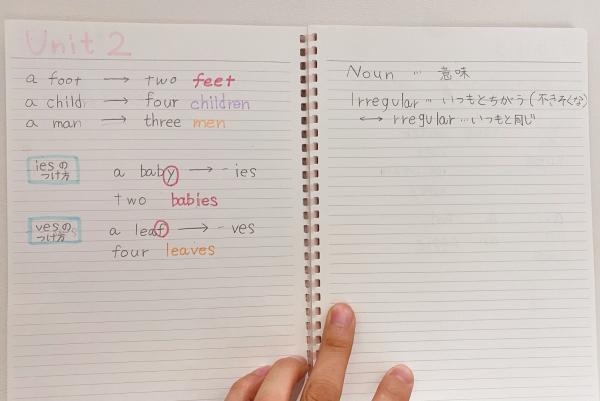 Unit 2
a foot → two feet
a child → four children
a man → three men
iesの
つけ方
a baby → -ies
two babies
vesの
つけ方
a leaf → -ves
four leaves
Noun … 意味
Irregular … いつもとちがう(不きそくな)
↔ rregular … いつもと同じ